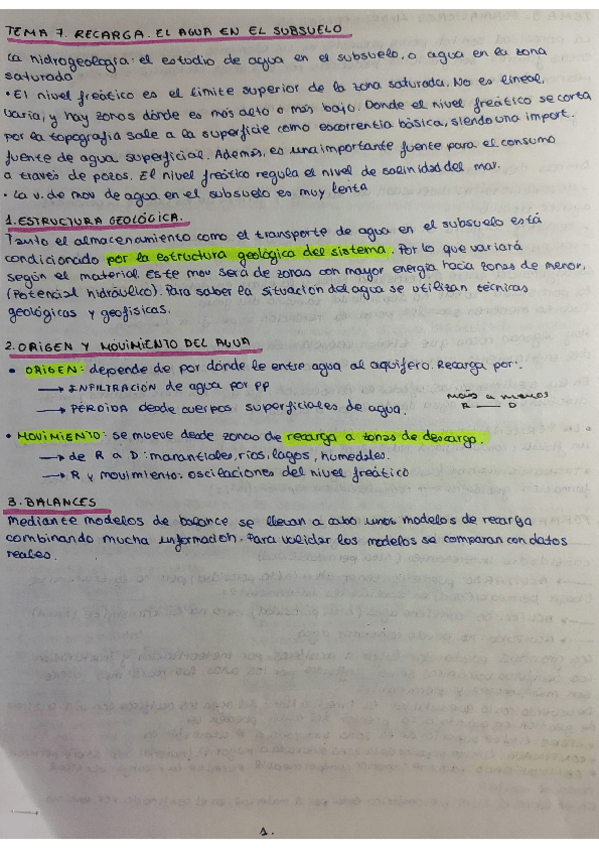 TEMA 7. RECARGA. EL AGUA EN EL SUBSUELO
La hidrogeología: el estudio de agua en el subsuelo, o agua en la zona
saturada
• El nivel freático es el límite superior de la zona saturada. No es lineal,
varia, y hay zonas donde es más alto o más bajo. Donde el nivel freático se corta
por la topografía sale a la superficie como escorrentía básica, siendo una import.
fuente de agua superficial. Además, es una importante fuente para el consumo
a través de pozos. El nivel freático regula el nivel de salinidad del mar.
• La v. de mov de agua en el subsuelo es muy lenta
1. ESTRUCTURA GEOLÓGICA.
Tanto el almacenamiento como el transporte de agua en el subsuelo está
condicionado por la estructura geológica del sistema. Por lo que variará
según el material. Este mov será de zonas con mayor energía hacia zonas de menor.
(Potencial hidráulico). Para saber la situación del agua se utilizan técnicas
geológicas y geofísicas.
2. ORIGEN Y MOVIMIENTO DEL AGUA
• ORIGEN: depende de por dónde le entre agua al acuífero. Recarga por:
→ INFILTRACIÓN de agua por PP
→ PÉRDIDA desde cuerpos superficiales de agua.
más a menos
R — D
• MOVIMIENTO: se mueve desde zonas de recarga a zonas de descarga.
→ de R a D: manantiales, ríos, lagos, humedales.
→ R y movimiento: oscilaciones del nivel freático
3. BALANCES
Mediante modelos de balance se llevan a cabo unos modelos de recarga
combinando mucha información. Para validar los modelos se comparan con datos
reales.
1.